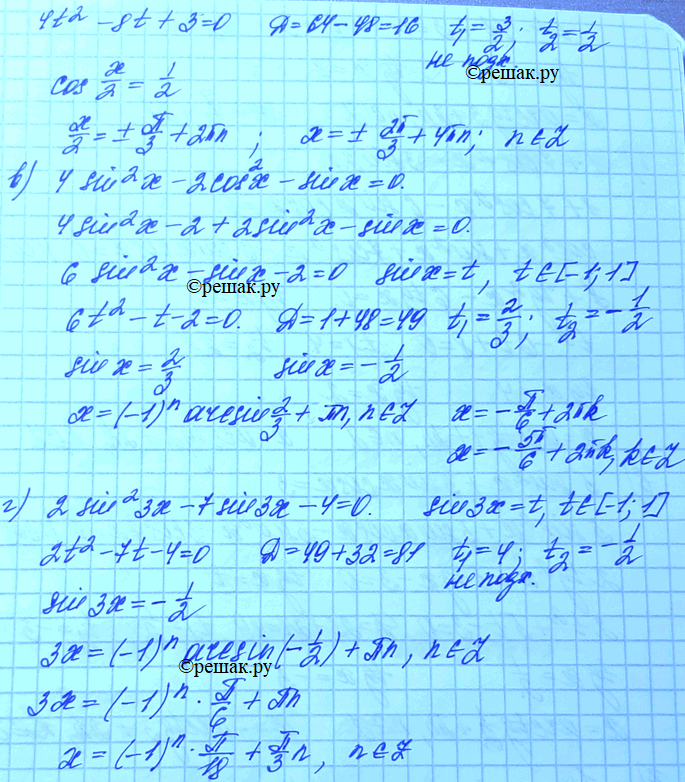 4t² - 8t + 3 = 0    D = 64 - 48 = 16    t₁ = 3/2; t₂ = 1/2
не подх.
©решак.ру
cos x/2 = 1/2
x/2 = ± π/3 + 2πn; x = ± 2π/3 + 4πn; n ∈ Z
в) 4 sin²x - 2cos²x - sin x = 0.
4 sin²x - 2 + 2 sin²x - sin x = 0.
6 sin²x - sin x - 2 = 0    sin x = t, t ∈ [-1; 1]
©решак.ру
6t² - t - 2 = 0.    D = 1 + 48 = 49    t₁ = 2/3; t₂ = -1/2
sin x = 2/3    sin x = -1/2
x = (-1)ⁿ arcsin 2/3 + πn, n ∈ Z    x = -π/6 + 2πk
x = -5π/6 + 2πk, k ∈ Z
г) 2 sin²3x - 7 sin 3x - 4 = 0.    sin 3x = t, t ∈ [-1; 1]
2t² - 7t - 4 = 0    D = 49 + 32 = 81    t₁ = 4; t₂ = -1/2
не подх.
sin 3x = -1/2
3x = (-1)ⁿ arcsin(-1/2) + πn, n ∈ Z
©решак.ру
3x = (-1)ⁿ · π/6 + πn
x = (-1)ⁿ · π/18 + π/3 n, n ∈ Z